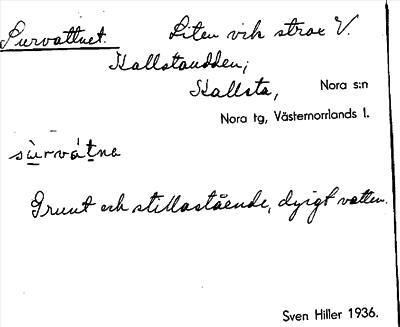 Survattnet. Liten vik strax V.
Hallstaudden;
Hallsta, Nora s:n
Nora tg, Västernorrlands l.
sùrvátne
Grunt och stillastående, dyigt vatten.
Sven Hiller 1936.